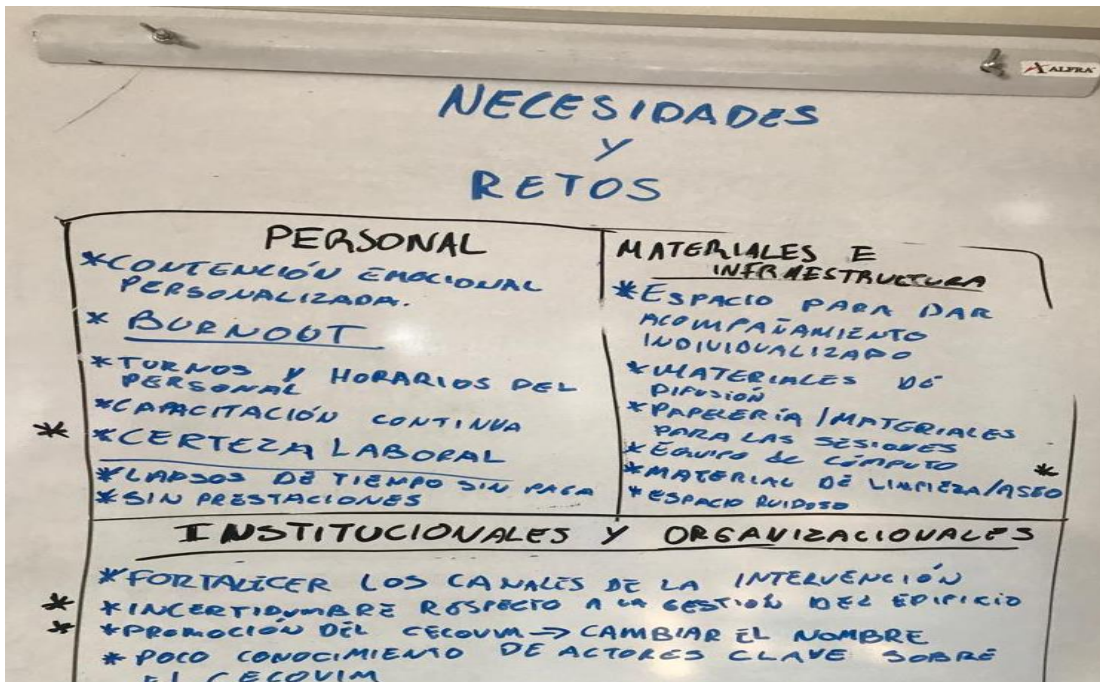 ALFRA
NECESIDADES
Y
RETOS
PERSONAL
*CONTENCIÓN EMOCIONAL
PERSONALIZADA.
* BURNOUT
*TURNOS Y HORARIOS DEL
PERSONAL
*CAPACITACIÓN CONTINUA
* *CERTEZA LABORAL
*LAPSOS DE TIEMPO SIN PAGA
*SIN PRESTACIONES
MATERIALES E
INFRAESTRUCTURA
*ESPACIO PARA DAR
ACOMPAÑAMIENTO
INDIVIDUALIZADO
*MATERIALES DE
DIFUSIÓN
*PAPELERÍA/MATERIALES
PARA LAS SESIONES
*EQUIPO DE CÓMPUTO
*MATERIAL DE LIMPIEZA/ASEO *
*ESPACIO RUIDOSO
INSTITUCIONALES Y ORGANIZACIONALES
*FORTALECER LOS CANALES DE LA INTERVENCIÓN
* *INCERTIDUMBRE RESPECTO A LA GESTIÓN DEL EDIFICIO
* *PROMOCIÓN DEL CECOVIM → CAMBIAR EL NOMBRE
* POCO CONOCIMIENTO DE ACTORES CLAVE SOBRE
EL CECOVIM